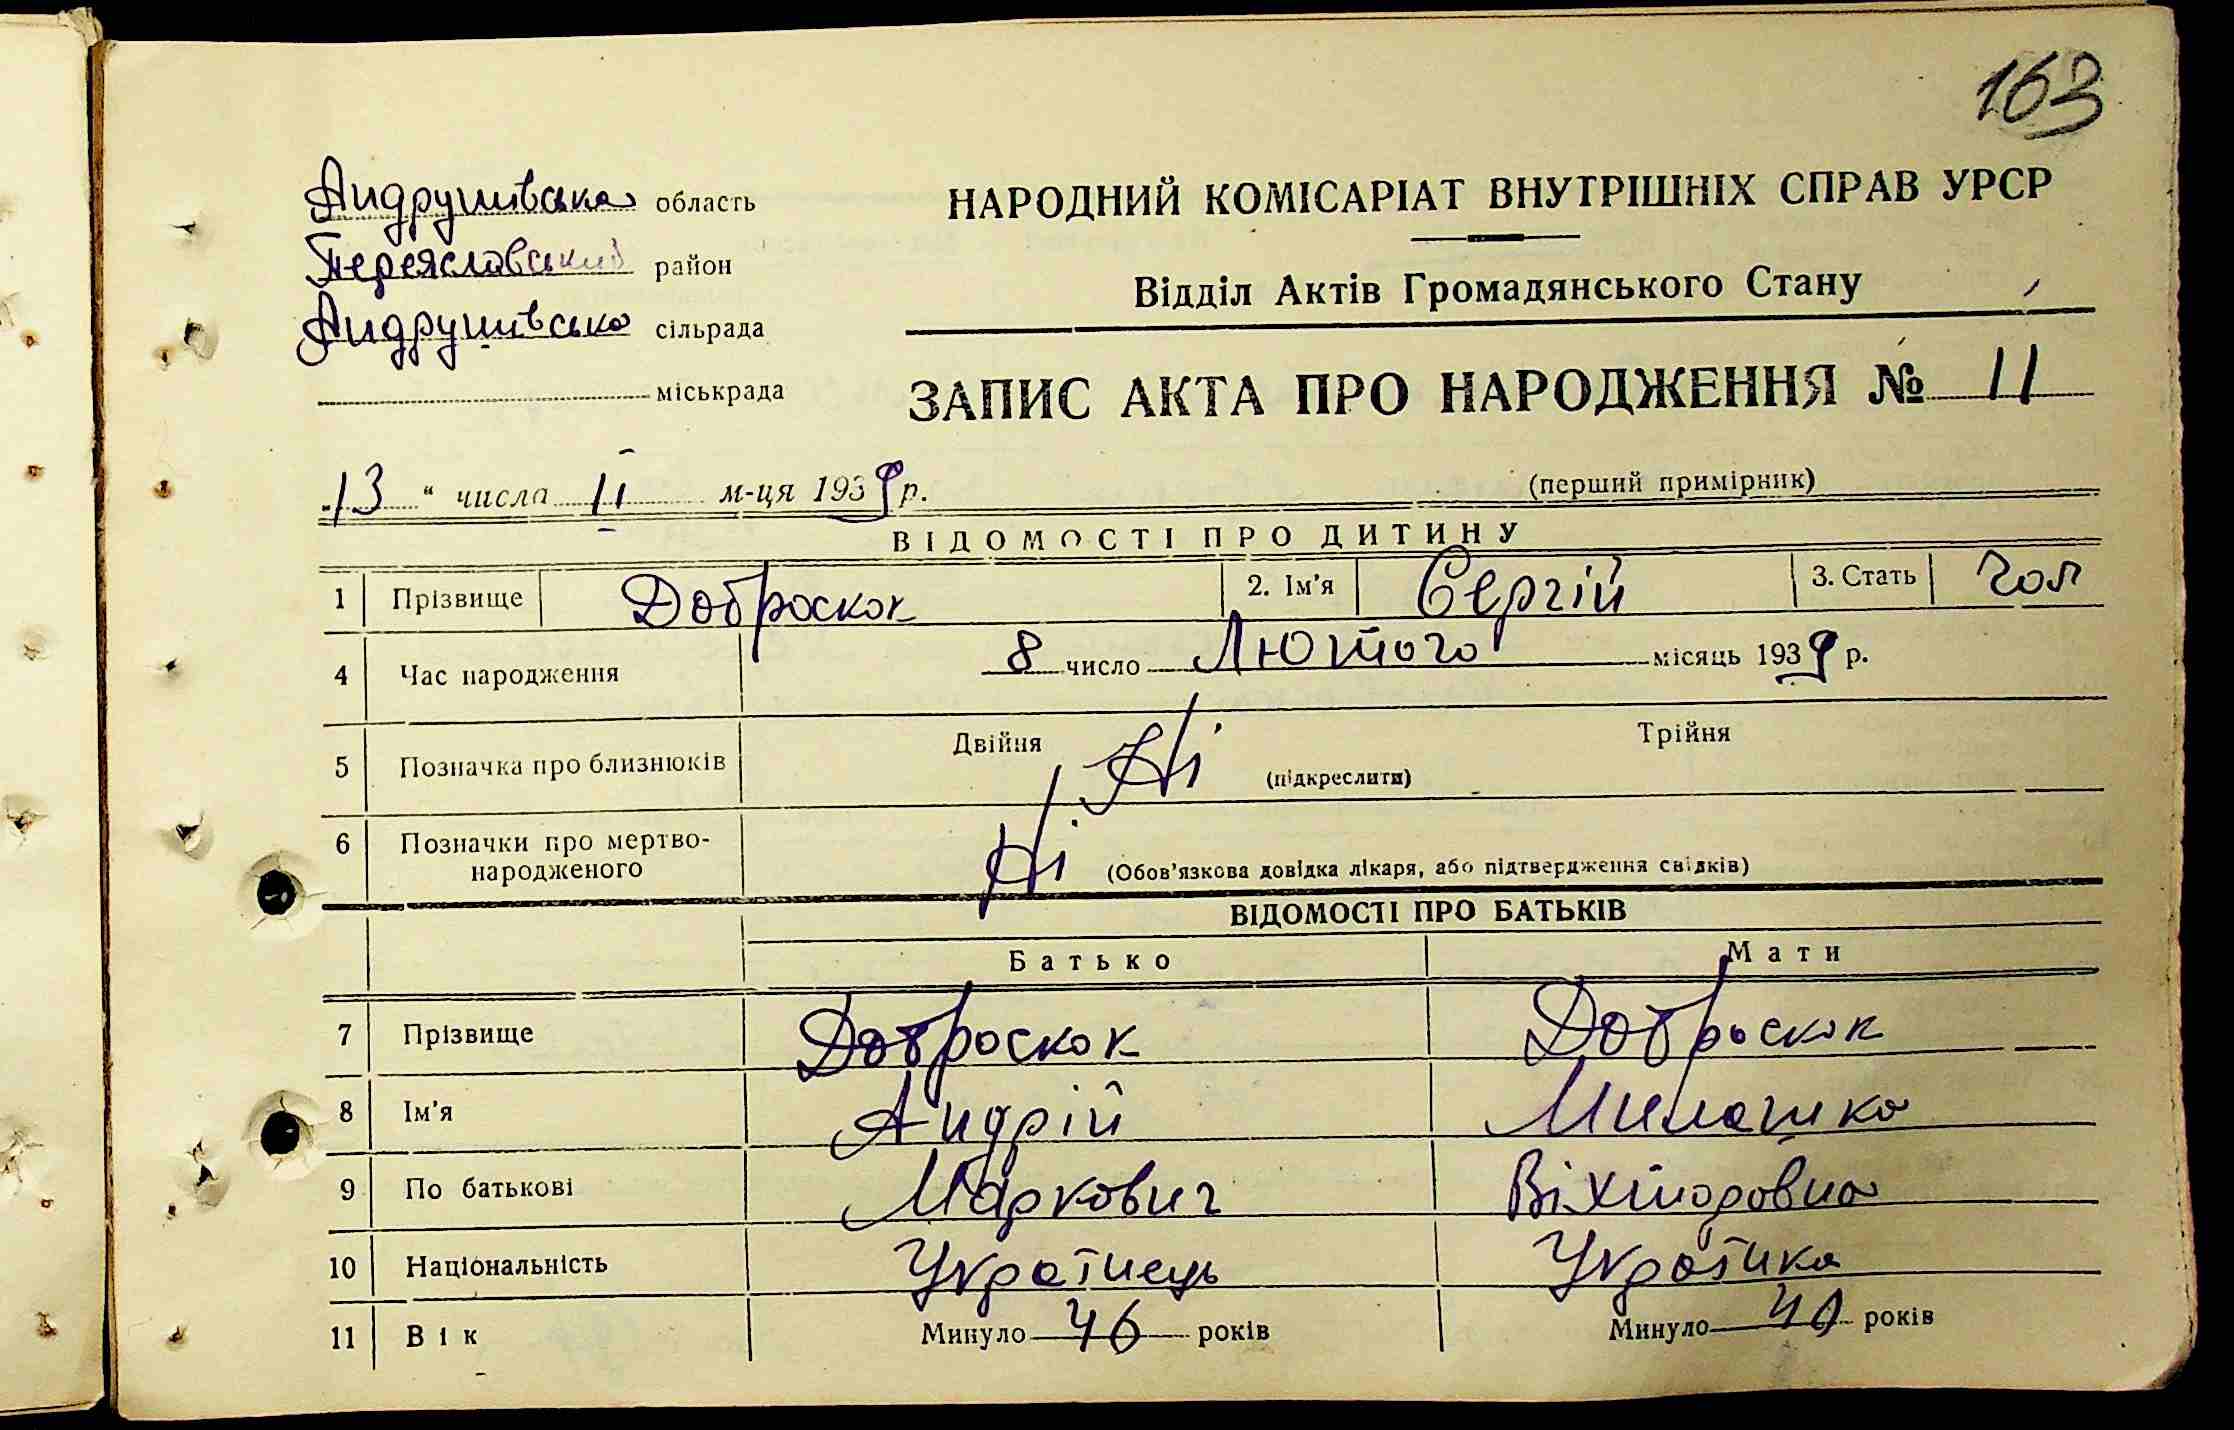 163
Андрушівська область
Переяславський район
Андрушівська сільрада
міськрада
НАРОДНИЙ КОМІСАРІАТ ВНУТРІШНІХ СПРАВ УРСР
Відділ Актів Громадянського Стану
ЗАПИС АКТА ПРО НАРОДЖЕННЯ № 11
„13“ числа II м-ця 1939 р.
(перший примірник)
ВІДОМОСТІ ПРО ДИТИНУ
1 Прізвище Доброскок 2. Ім'я Сергій 3. Стать Чол
4 Час народження 8 число Лютого місяць 1939 р.
5 Позначка про близнюків Двійня Ні (підкреслити) Трійня
6 Позначки про мертво-
народженого Ні (Обов'язкова довідка лікаря, або підтвердження свідків)
ВІДОМОСТІ ПРО БАТЬКІВ
Батько Мати
7 Прізвище Доброскок Доброскок
8 Ім'я Андрій Милашка
9 По батькові Маркович Вікторовна
10 Національність Українець Українка
11 Вік Минуло 46 років Минуло 40 років